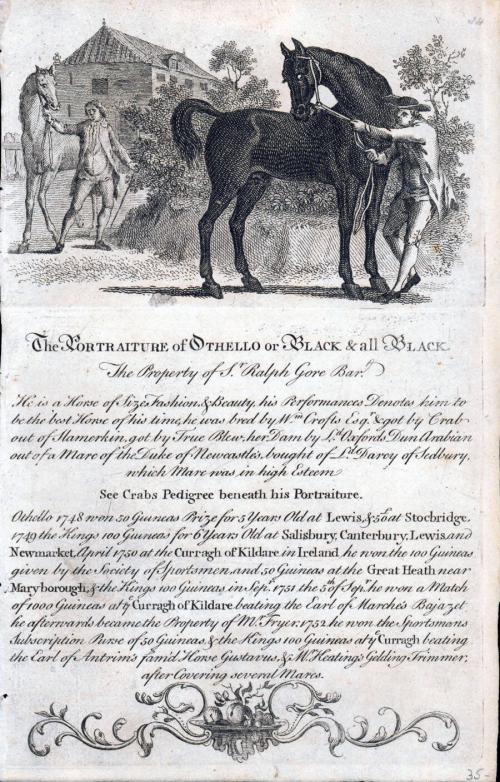 34
The PORTRAITURE of OTHELLO or BLACK & all BLACK.
The Property of Sr. Ralph Gore Bart.
He is a Horse of Size, Fashion, & Beauty, his Performances Denotes him to
be the best Horse of his time, he was bred by Wm. Crofts Esqr. & got by Crab
out of Slamerkin, got by True Blew, her Dam by Ld. Oxfords Dun Arabian
out of a Mare of the Duke of Newcastles, bought of Ld. Darcy of Sedbury,
which Mare was in high Esteem
See Crabs Pedigree beneath his Portraiture.
Othello 1748 won 50 Guineas Prize for 5 Years Old at Lewis, & 50£ at Stocbridge
1749 the Kings 100 Guineas for 6 Years Old at Salisbury, Canterbury, Lewis, and
Newmarket, April 1750 at the Curragh of Kildare in Ireland he won the 100 Guineas
given by the Society of Sportsmen, and 50 Guineas at the Great Heath near
Maryborough, & the Kings 100 Guineas in Sepr. 1751 the 5th. of Sepr. he won a Match
of 1000 Guineas at ye. Curragh of Kildare beating the Earl of March's Bajazet
he afterwards became the Property of Mr. Fryer. 1752 he won the Sportsmans
Subscription Purse of 50 Guineas, & the Kings 100 Guineas at ye. Curragh beating
the Earl of Antrim's fam'd Horse Gustavus, & Mr. Keating's Gelding Trimmer,
after Covering several Mares.
35